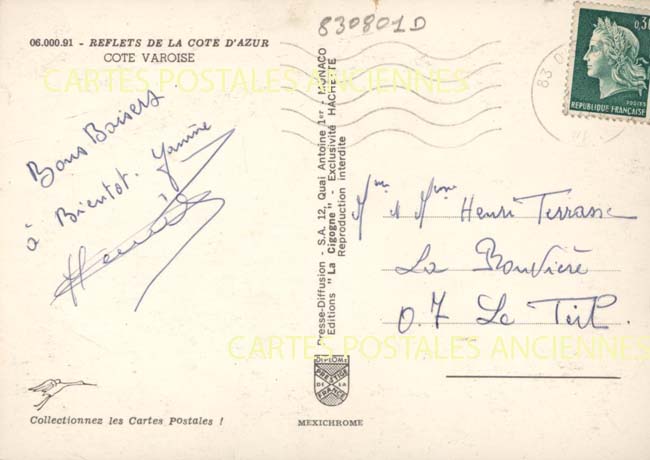 830801D
06.000.91 - REFLETS DE LA COTE D'AZUR
COTE VAROISE
CARTES POSTALES ANCIENNES
Bons Baisers
à Bientot. Yanine
Presse-Diffusion - S.A. 12, Quai Antoine 1er - MONACO
Editions "La Cigogne" - Exclusivité HACHETTE
Reproduction interdite
0,30
REPUBLIQUE FRANCAISE
83
Mr & Mme Henri Terrasse
La Bouvière
0.7 Le Teil.
CARTES POSTALES ANCIENNES
DIPLOME
PRESTIGE
DE LA
FRANCE
Collectionnez les Cartes Postales !
MEXICHROME